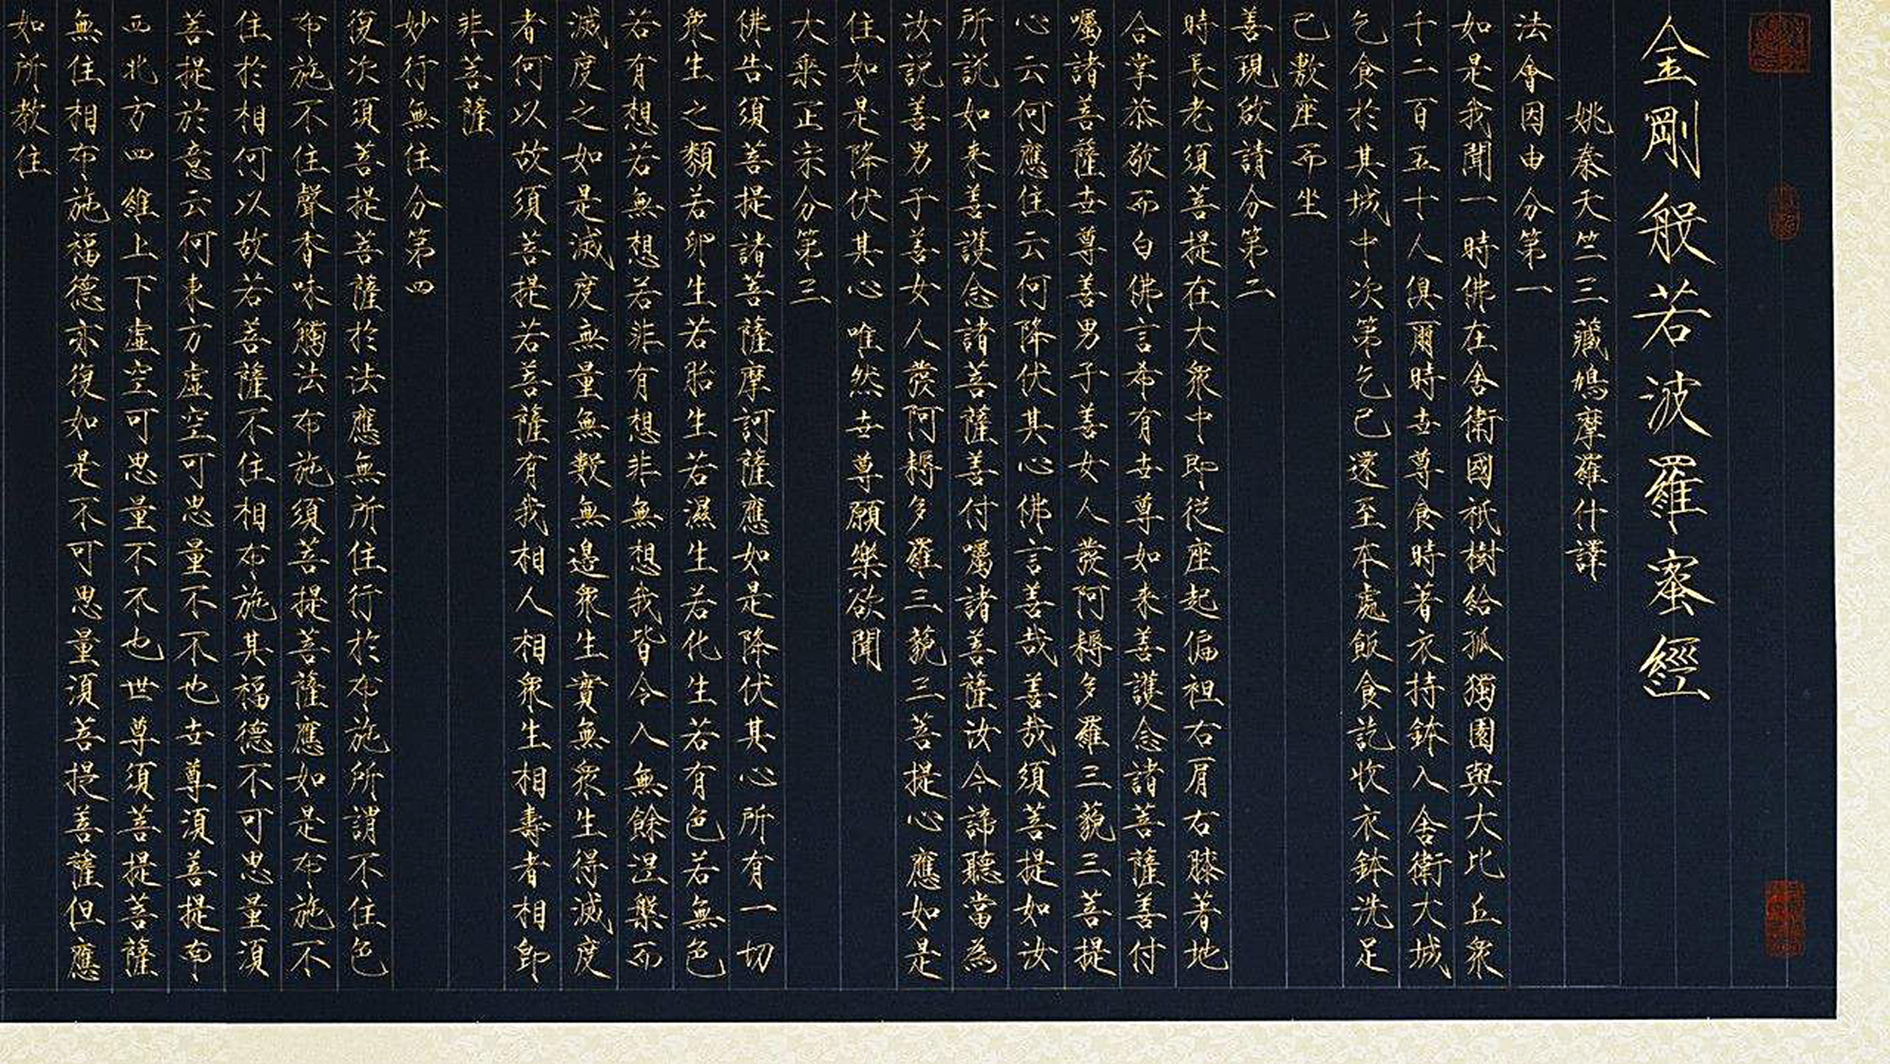 金剛般若波羅蜜經
姚秦天竺三藏鳩摩羅什譯
法會因由分第一
如是我聞一時佛在舍衛國祇樹給孤獨園與大比丘衆
千二百五十人俱爾時世尊食時著衣持鉢入舍衛大城
乞食於其城中次第乞已還至本處飯食訖收衣鉢洗足
已敷座而坐
善現啟請分第二
時長老須菩提在大衆中即從座起偏袒右肩右膝著地
合掌恭敬而白佛言希有世尊如来善護念諸菩薩善付
囑諸菩薩世尊善男子善女人發阿耨多羅三藐三菩提
心云何應住云何降伏其心佛言善哉善哉須菩提如汝
所說如来善護念諸菩薩善付囑諸菩薩汝今諦聽當為
汝說善男子善女人發阿耨多羅三藐三菩提心應如是
住如是降伏其心唯然世尊願樂欲聞
大乘正宗分第三
佛告須菩提諸菩薩摩訶薩應如是降伏其心所有一切
衆生之類若卵生若胎生若濕生若化生若有色若無色
若有想若無想若非有想非無想我皆令入無餘涅槃而
滅度之如是滅度無量無數無邊衆生實無衆生得滅度
者何以故須菩提若菩薩有我相人相衆生相壽者相即
非菩薩
妙行無住分第四
復次須菩提菩薩於法應無所住行於布施所謂不住色
布施不住聲香味觸法布施須菩提菩薩應如是布施不
住於相何以故若菩薩不住相布施其福德不可思量須
菩提於意云何東方虛空可思量不不也世尊須菩提南
西北方四維上下虛空可思量不不也世尊須菩提菩薩
無住相布施福德亦復如是不可思量須菩提菩薩但應
如所教住